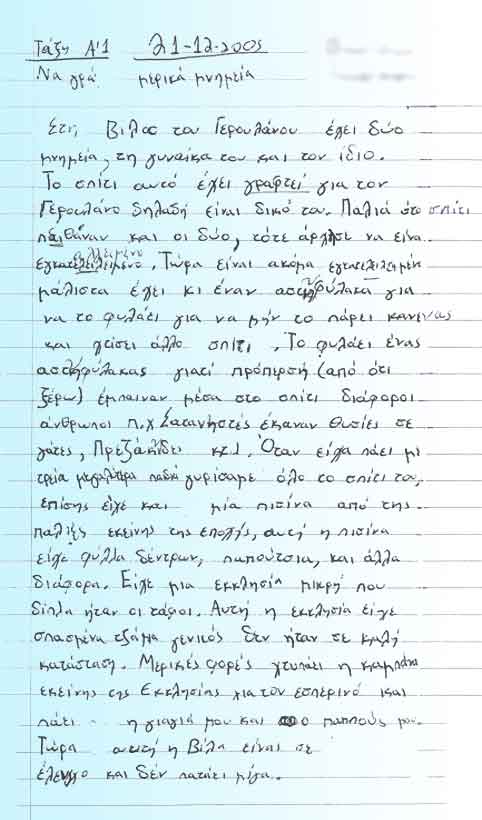 Τάξη Α'1 21-12-2005
Να γρά μερικά μνημεία
Στη Βιλας του Γερουλάνου έχει δύο
μνημεία, τη γυναίκα του και τον ίδιο.
Το σπίτι αυτό έχει γραφτεί για τον
Γερουλάνο δηλαδή είναι δικό του. Παλιά στο σπίτι
παιθάναν και οι δύο, τότε άρχησε να είνα
εγκατελειλειμένο. Τώρα είναι ακόμα εγκατελειλειμένη
μάλιστα έχει κι έναν αστυφύλακα για
να το φυλάει για να μήν το πάρει κανένας
και χτίσει άλλο σπίτι. Το φυλάει ένας
αστυφύλακας γιατί πρόπερσή (από ότι
ξέρω) έμπαιναν μέσα στο σπίτι διάφοροι
άνθρωποι π.χ Σατανηστές έκαναν θυσίες σε
γάτες, Πρεζάκιδες κτλ. Όταν είχα πάει με
τρεία μεγαλύτερα παδιά γυρίσαμε όλο το σπίτι του,
επίσης είχε και μία πισίνα από της
παλιές εκείνης της εποχής, αυτή η πισίνα
είχε φύλλα δέντρων, παπούτσια, και άλλα
διάφορα. Είχε μια εκκλησία μικρή που
δίπλα ήταν οι τάφοι. Αυτή η εκκλησία είχε
σπασμένα τζάμα γενικός δεν ήταν σε καλή
κατάσταση. Μερικές φορές χτυπάει η καμπάνα
εκείνης της Εκκλησίης για τον εσπερινό και
πάει η γιαγιά μου και ο παππούς μου.
Τώρα αυτή η Βίλα είναι σε
έλενχο και δέν πατάει μέσα.